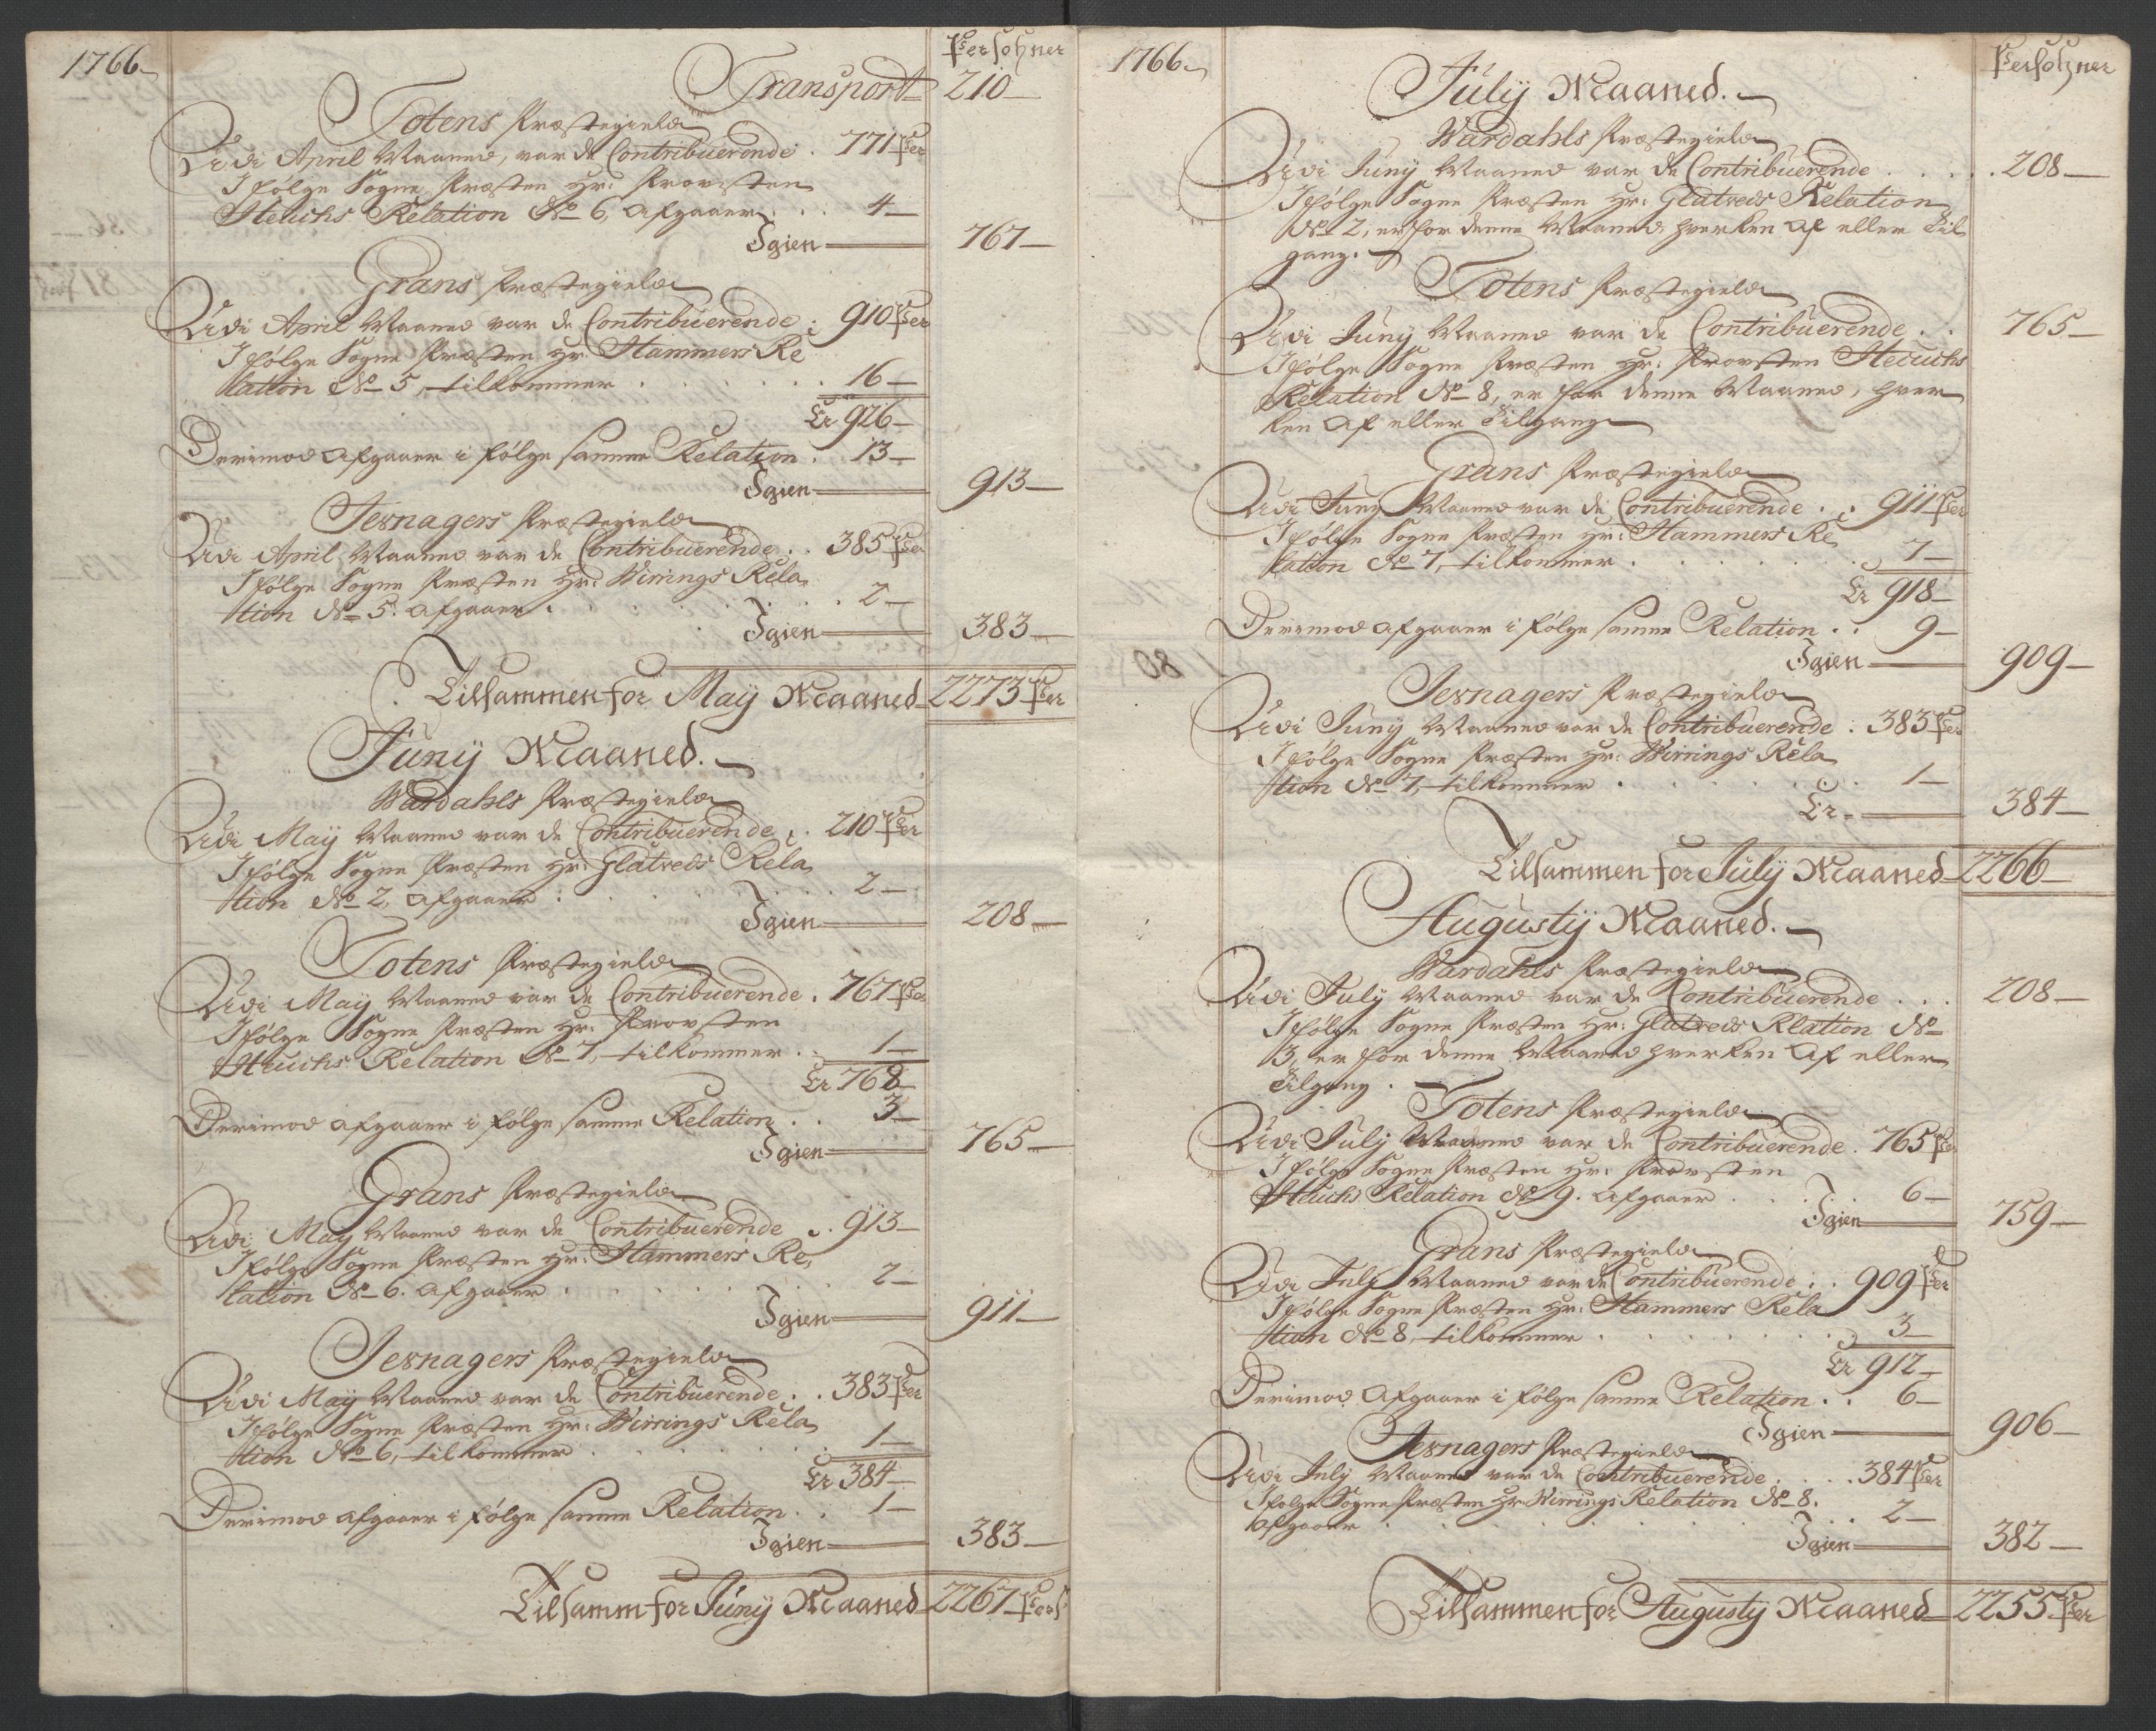 1766
Persohner
Transport 210
Totens Præstegield
Udi April Maaned, var de Contribuerende . 771 Per
Ifølge Sogne Præsten Hr: Provsten
Heuchs Relation No 6, afgaaer . . . 4
Igien 767
Grans Præstegield
Udi April Maaned var de Contribuerende . 910 Per
Ifølge Sogne Præsten Hr: Hammers Re
lation No 5, tilkommer . . . . . . 16
Er 926
Derimod afgaaer i følge samme Relation . 13
Igien 913
Jevnagers Præstegield
Udi April Maaned var de Contribuerende . . 385 Per
Ifølge Sogne Præsten Hr: Wirrings Rela
tion No 5. afgaaer . . . . . 2
Igien 383
Tilsammen for Maij Maaned 2273 Per
Junij Maaned.
Wardahls Præstegield
Udi Maij Maaned var de Contribuerende . . 210 Per
Ifølge Sogne Præsten Hr: Glatveds Rela
tion No 2, afgaaer . . . . 2
Igien 208
Totens Præstegield
Udi Maij Maaned var de Contribuerende . 767 Per
Ifølge Sogne Præsten Hr: Provsten
Heuchs Relation No 7, tilkommer . . 1
Er 768
Derimod afgaaer i følge samme Relation . . 3
Igien 765
Grans Præstegield
Udi Maij Maaned var de Contribuerende . . 913
Ifølge Sogne Præsten Hr: Hammers Re
lation No 6. afgaaer . . . . . 2
Igien 911
Jevnagers Præstegield
Udi Maij Maaned var de Contribuerende . . 383 Per
Ifølge Sogne Præsten Hr: Wirrings Rela
tion No 6, tilkommer . . . . . 1
Er 384
Derimod afgaaer i følge samme Relation . . 1
Igien 383
Tilsamm for Junij Maaned 2267 Pers
1766
Persohner
Julij Maaned.
Wardahls Præstegield
Udi Junij Maaned var de Contribuerende . . . . 208
Ifølge Sogne Præsten Hr: Glatveds Relation
No 2, er for denne Maaned hverken af eller til
gang.
Totens Præstegield
Udi Junij Maaned var de Contribuerende . . 765
Ifølge Sogne Præsten Hr: Provsten Heuchs
Relation No 8, er for denne Maaned, hver
ken af eller Tilgang
Grans Præstegield
Udi Junij Maaned var de Contribuerende . . 911 Per
Ifølge Sogne Præsten Hr: Hammers Re
lation No 7, tilkommer . . . . . 7
Er 918
Derimod afgaaer i følge samme Relation . . 9
Igien 909
Jevnagers Præstegield
Udi Junij Maaned var de Contribuerende . 383 Per
Ifølge Sogne Præsten Hr: Wirrings Rela
tion No 7, tilkommer . . . . . 1
Er 384
Tilsammen for Julij Maaned 2266
Augustij Maaned.
Wardahls Præstegield
Udi Julij Maaned var de Contribuerende . . . 208
Ifølge Sogne Præsten Hr: Glatveds Rlation No
3, er for denne Maaned hverken af eller
Tilgang .
Totens Præstegield
Udi Julij Maaned var de Contribuerende . 765 Per
Ifølge Sogne Præsten Hr: Provsten
Heuchs Relation No 9. afgaaer . . . . 6
Igien 759
Grans Præstegield
Udi Julij Maaned var de Contribuerende . . 909 Per
Ifølge Sogne Præsten Hr: Hammers Rela
tion No 8, tilkommer . . . . . 3
Er 912
Derimod afgaaer i følge samme Relation . . 6
Igien 906
Jevnagers Præstegield
Udi Julij Maaned var de Contribuerende . . . 384 Per
Ifølge Sogne Præsten Hr Wirrings Relation No 8.
afgaaer . . . . . . . 2
Igien 382
Tilsammen for Augustij Maaned 2255 Per